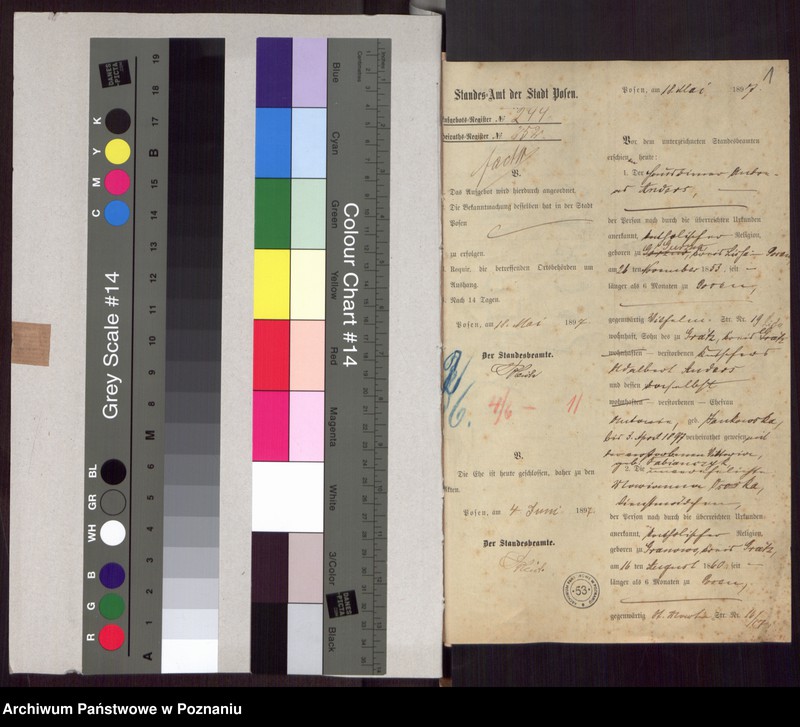 Grey Scale #14
C M Y K
R G B WH GR BL
A 1 2 3 4 5 6 M 8 9 10 11 12 13 14 15 B 17 18 19
DANES
PICTA
Colour Chart #14
Blue
Cyan
Green
Yellow
Red
Magenta
White
3/Color
Black
Centimetres
DANES
PICTA
Standes-Amt der Stadt Posen.
Aufgebots-Register № 244
Heiraths-Register № 352
V.
Das Aufgebot wird hierdurch angeordnet.
Die Bekanntmachung desselben hat in der Stadt
Posen
zu erfolgen.
Requir. die betreffenden Ortsbehörden um
Aushang.
Nach 14 Tagen
Posen, am 18. Mai 1897
Der Standesbeamte.
4/6 – 11
V.
Die Ehe ist heute geschlossen, daher zu den
Akten.
Posen, am 4. Juni 1897.
Der Standesbeamte.
53
1
Posen, am 18. Mai 1897
Vor dem unterzeichneten Standesbeamten
erschien heute:
1. Der
Anders,
der Person nach durch die überreichten Urkunden
anerkannt, katholischer Religion,
geboren zu
am 26 ten November 1853, seit
länger als 6 Monaten zu Posen,
gegenwärtig Wilhelm- Str. Nr. 19
wohnhaft, Sohn des zu Grätz, Kreis Grätz
wohnhaften – verstorbenen Kutschers
Adalbert Anders
und dessen daselbst
wohnhaften – verstorbenen – Ehefrau
Antonie, geb. Jankowska,
bis 3. April 1897 verheirathet gewesen mit
der verstorbenen Viktoria,
geb. Fabianczyk,
2. Die unverehelichte
Dienstmädchen,
der Person nach durch die überreichten Urkunden
anerkannt, katholischer Religion,
geboren zu Granowo, Kreis Grätz,
am 16 ten August 1860, seit
länger als 6 Monaten zu Posen,
gegenwärtig St. Martin Str. Nr.
Archiwum Państwowe w Poznaniu